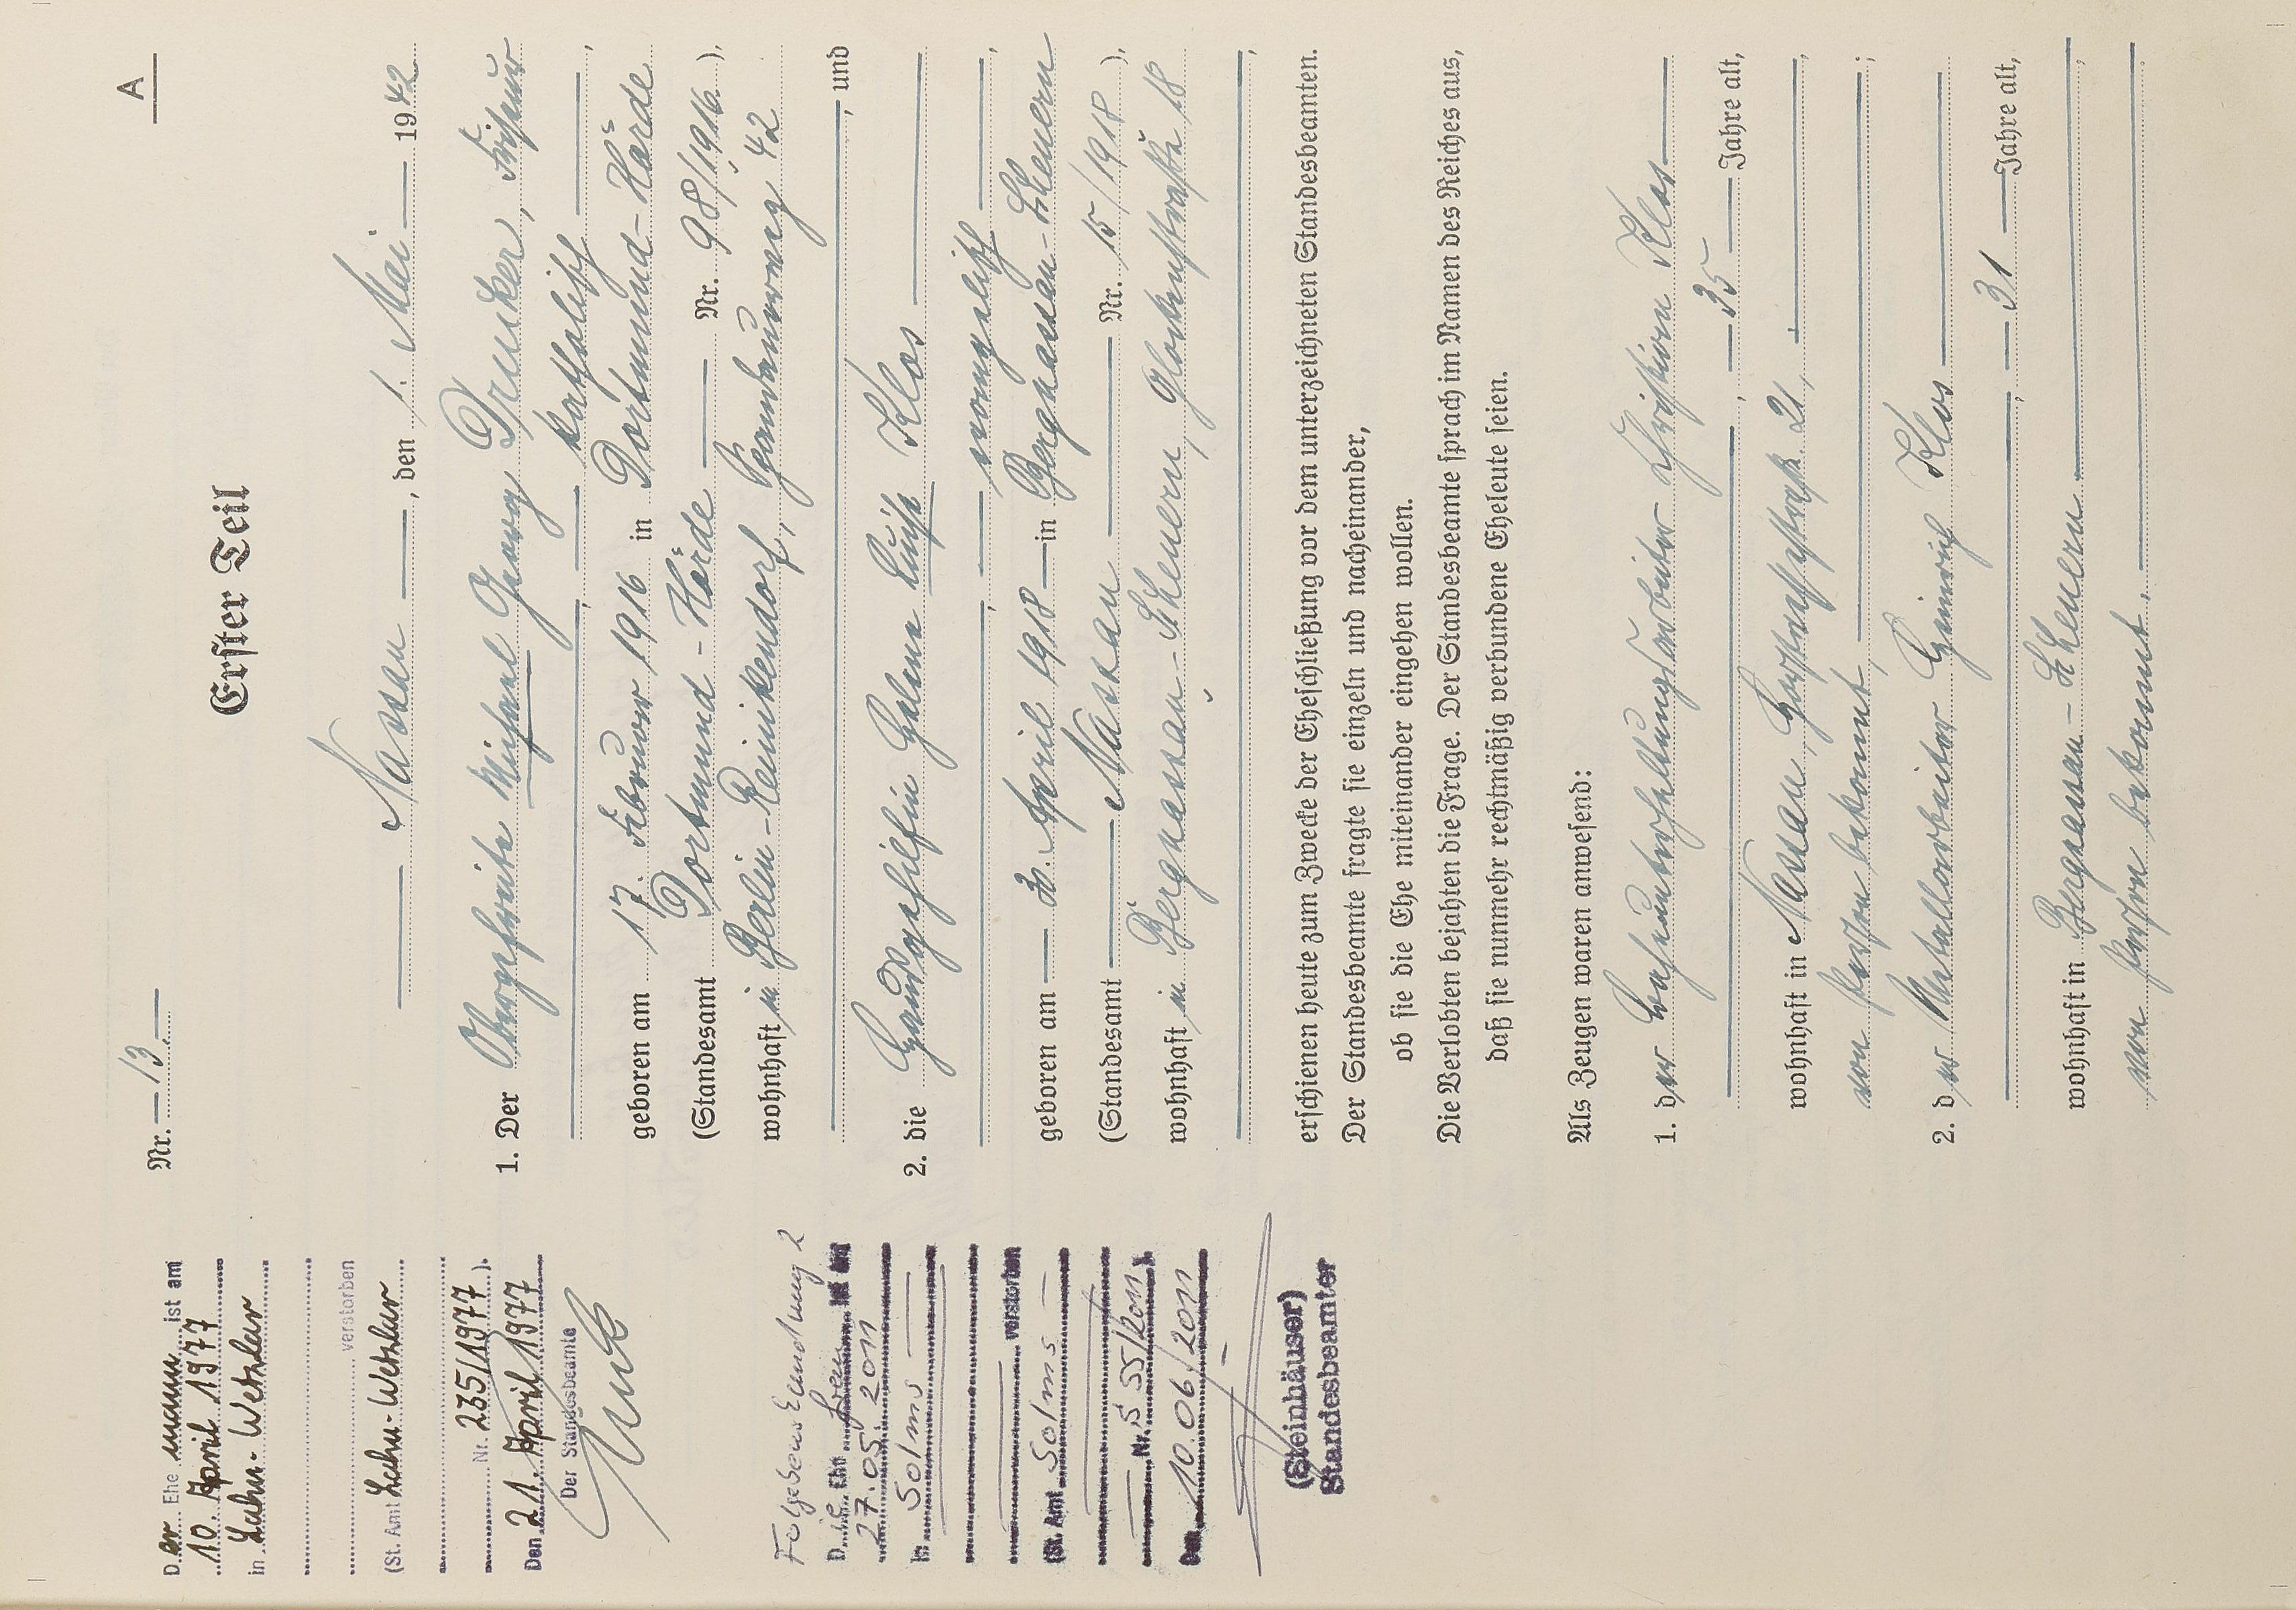 A
Nr. 13.
Erster Teil
Nassau, den 1. Mai 1942
1. Der Obergefreite Michael Georg Drucker, Friseur
katholisch,
geboren am 17. Februar 1916 in Dortmund-Hörde
(Standesamt Dortmund-Hörde Nr. 98/1916.),
wohnhaft in Berlin-Reinikendorf,
42
, und
2. die Haus Helene Luise Klos
evangelisch,
geboren am April 1918 in Bergnassau-Scheuern
(Standesamt Nassau Nr. 15/1918),
wohnhaft in Bergnassau-Scheuern, 18
erschienen heute zum Zwecke der Eheschließung vor dem unterzeichneten Standesbeamten.
Der Standesbeamte fragte sie einzeln und nacheinander,
ob sie die Ehe miteinander eingehen wollen.
Die Verlobten bejahten die Frage. Der Standesbeamte sprach im Namen des Reiches aus,
daß sie nunmehr rechtmäßig verbundene Eheleute seien.
Als Zeugen waren anwesend:
1. der Bahnunterhaltungsarbeiter Christian Klos
, 35 Jahre alt,
wohnhaft in Nassau, 21,
von Person bekannt,
2. der Metallarbeiter Heinrich Klos
, 31 Jahre alt,
wohnhaft in Bergnassau-Scheuern
von Person bekannt.
Der Ehemann ist am
10. April 1977
in Lahn-Wetzlar
verstorben
(St. Amt Lahn-Wetzlar
Nr. 235/1977).
Den 21. April 1977
Der Standesbeamte
Folgebeurkundung 2
Die Ehefrau ist am
27.05.2011
in Solms
verstorben
(St. Amt Solms
Nr. S 55/2011)
Den 10.06/2011
(Steinhäuser)
Standesbeamter